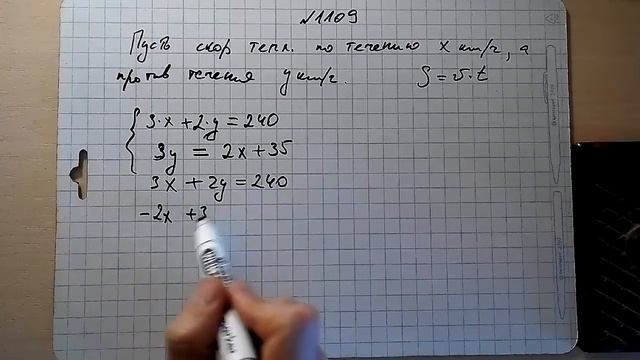 №1109
Пусть скор тепл. по течению x км/ч, а
против течения y км/ч. S = v·t
3·x + 2·y = 240
3y = 2x + 35
3x + 2y = 240
-2x + 3